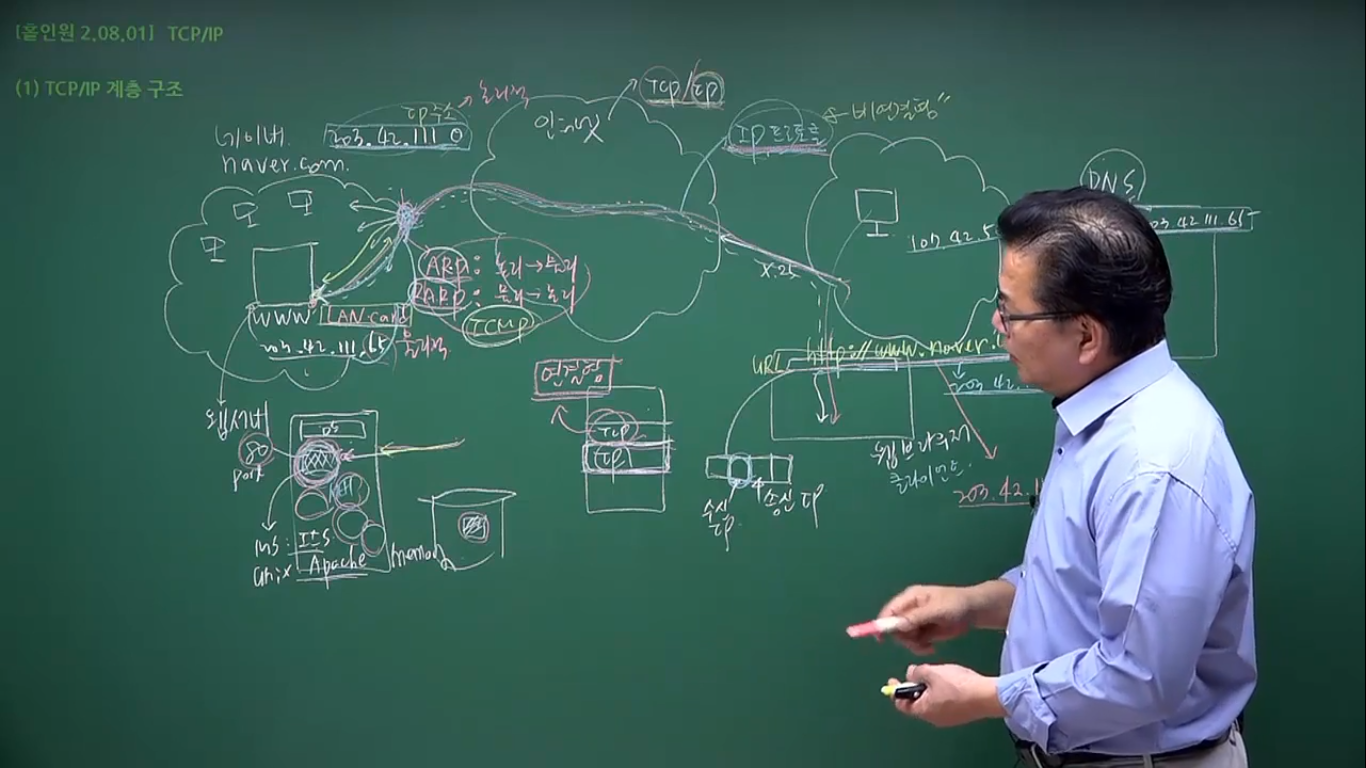 [홀인원 2.08.01] TCP/IP
(1) TCP/IP 계층 구조
TCP/IP
IP주소 → 논리적
인터넷
네이버
naver.com
203.42.111.0
IP 프로토콜
← 비연결형"
DNS
203.42.111.65
X.25
ARP : 논리→물리
RARP : 물리→논리
ICMP
WWW
LAN-card
203.42.111.65
물리적
연결형
TCP
IP
URL
http://www.naver.
203.42.
웹브라우저
클라이언트
203.42.1
수신
IP
송신 IP
웹서버
80
port
OS
MS : IIS
Unix
Apache
memory